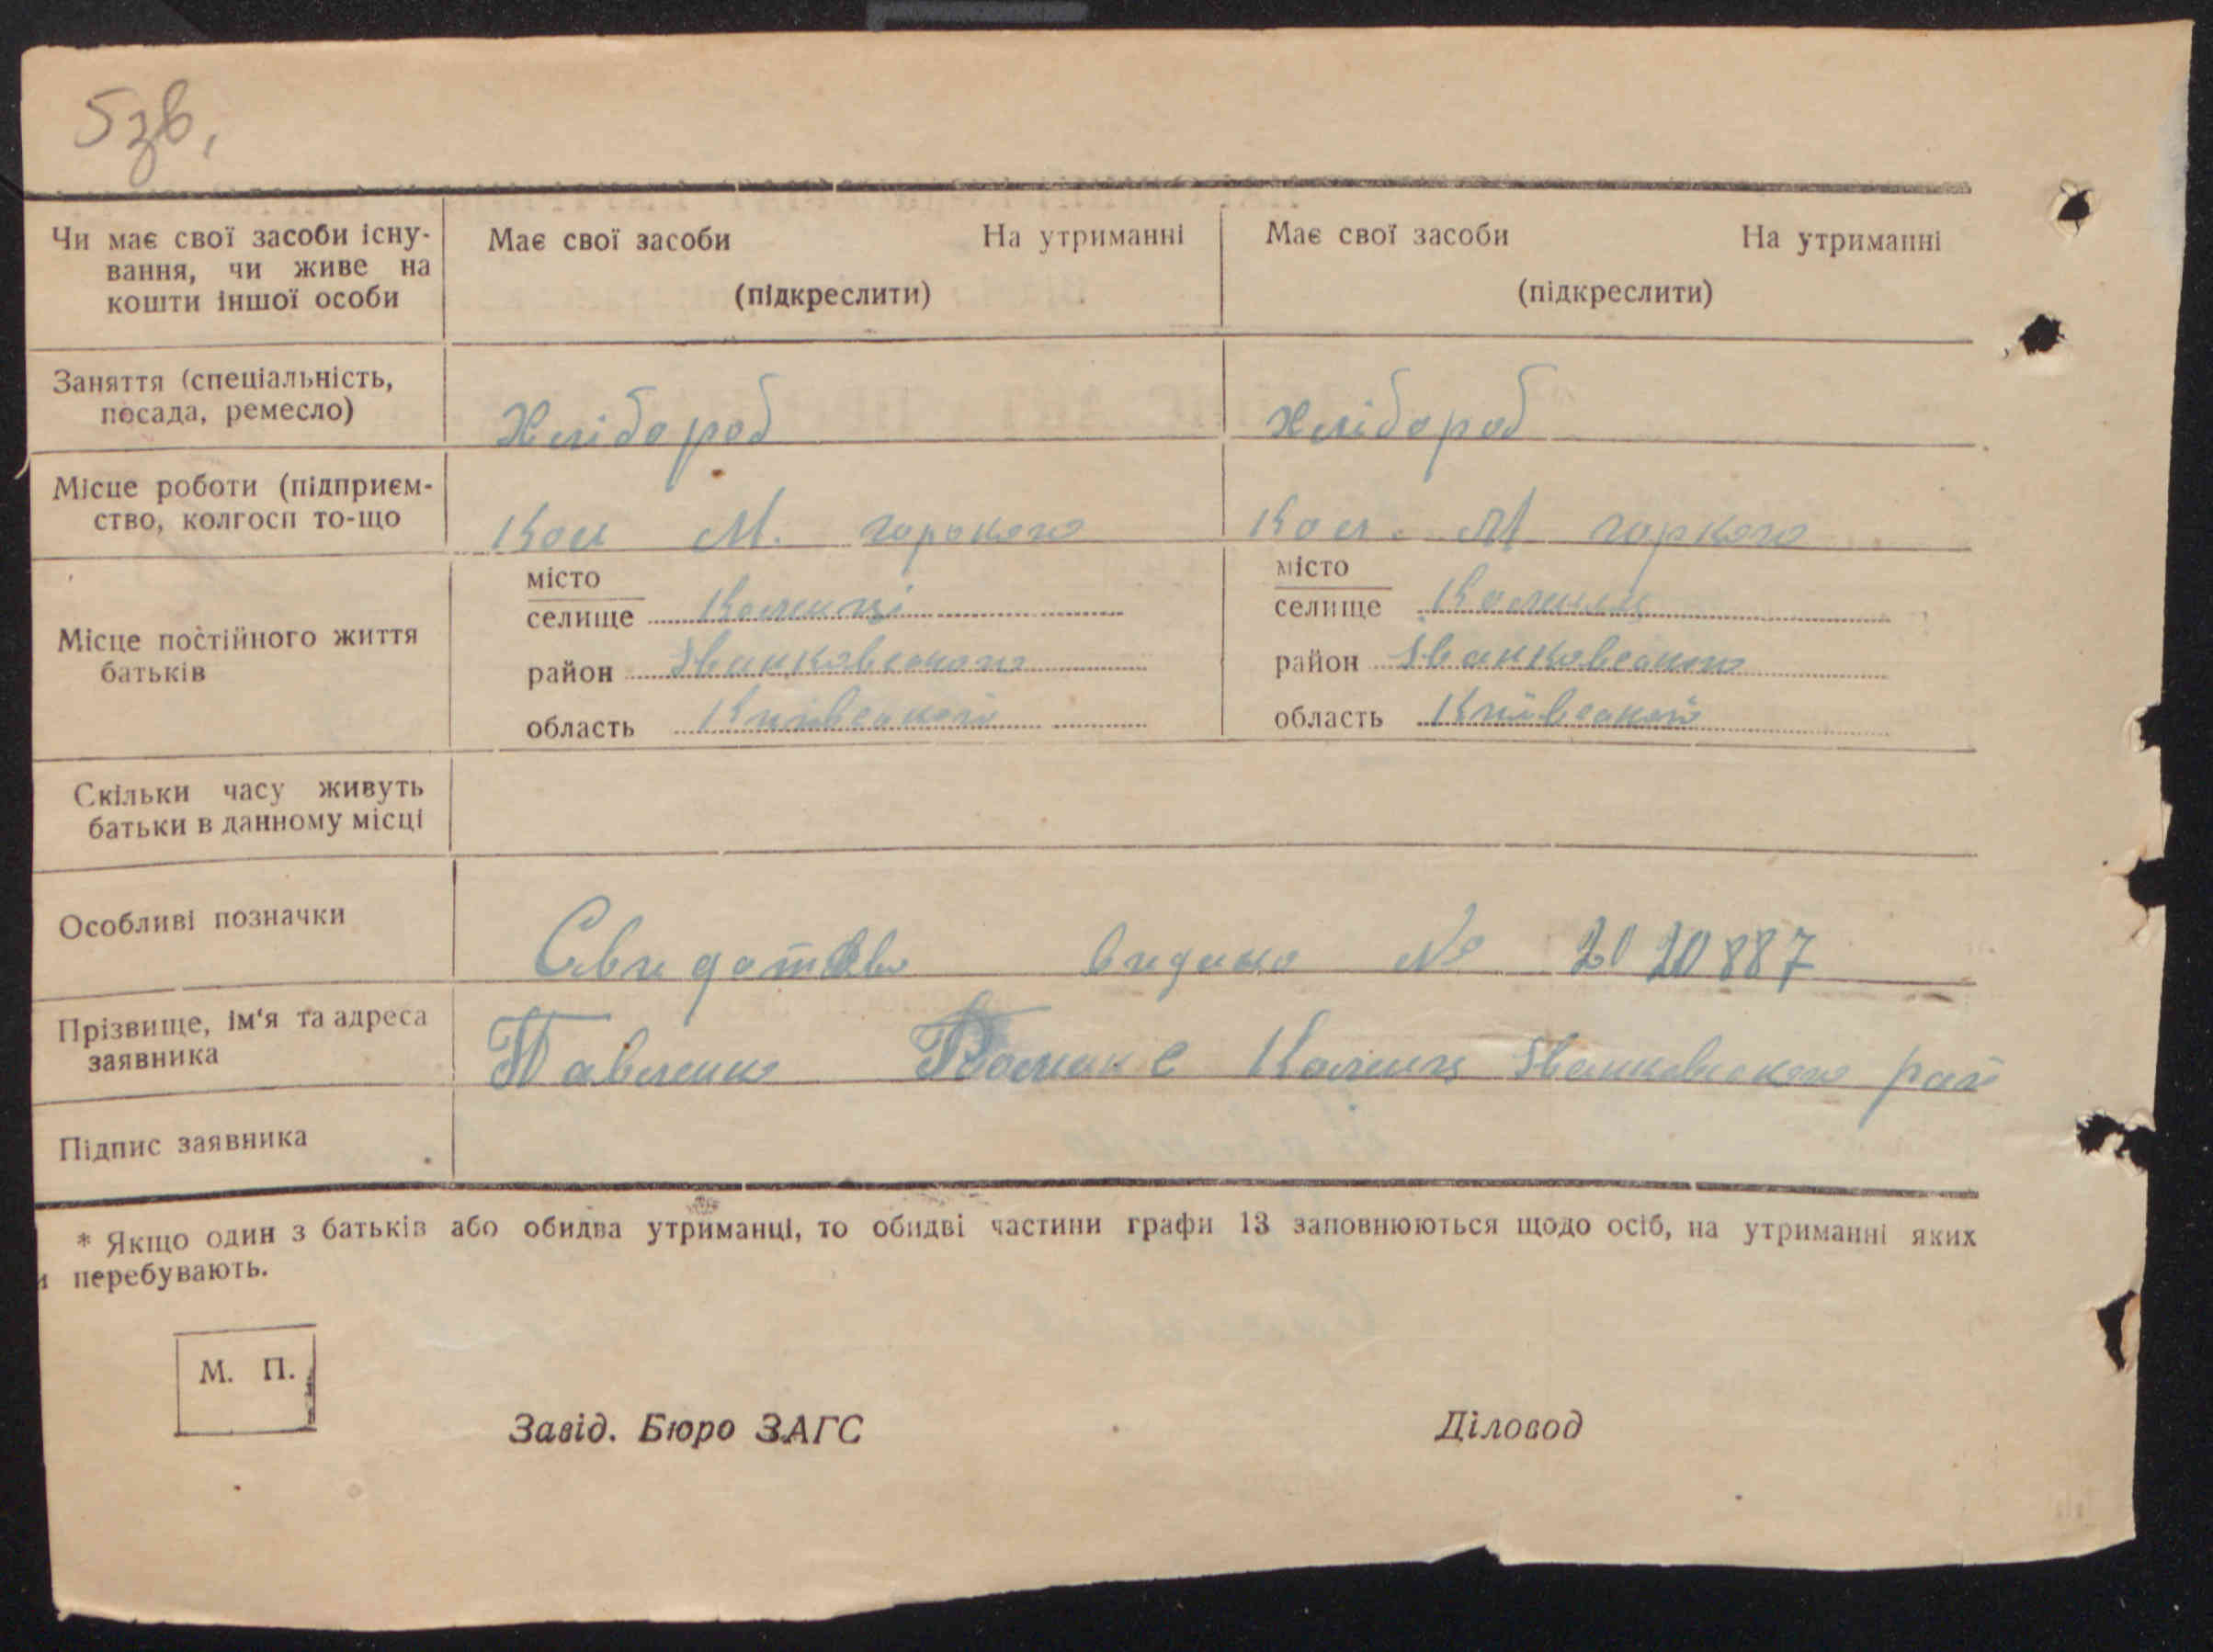 5зв.
Чи має свої засоби існу-
вання, чи живе на
кошти іншої особи
Має свої засоби На утриманні
(підкреслити)
Має свої засоби На утриманні
(підкреслити)
Заняття (спеціальність,
посада, ремесло)
Хлібороб
Хлібороб
Місце роботи (підприєм-
ство, колгосп то-що
Кол М. горького
Кол. М горкого
Місце постійного життя
батьків
місто
селище
район Іванковського
область Київської
місто
селище
район Іванковського
область Київської
Скільки часу живуть
батьки в данному місці
Особливі позначки
видано № 2020887
Прізвище, ім'я та адреса
заявника
Павленко с Іванковского рай
Підпис заявника
* Якщо один з батьків або обидва утриманці, то обидві частини графи 13 заповнюються щодо осіб, на утриманні яких
и перебувають.
М. П.
Завід. Бюро ЗАГС
Діловод